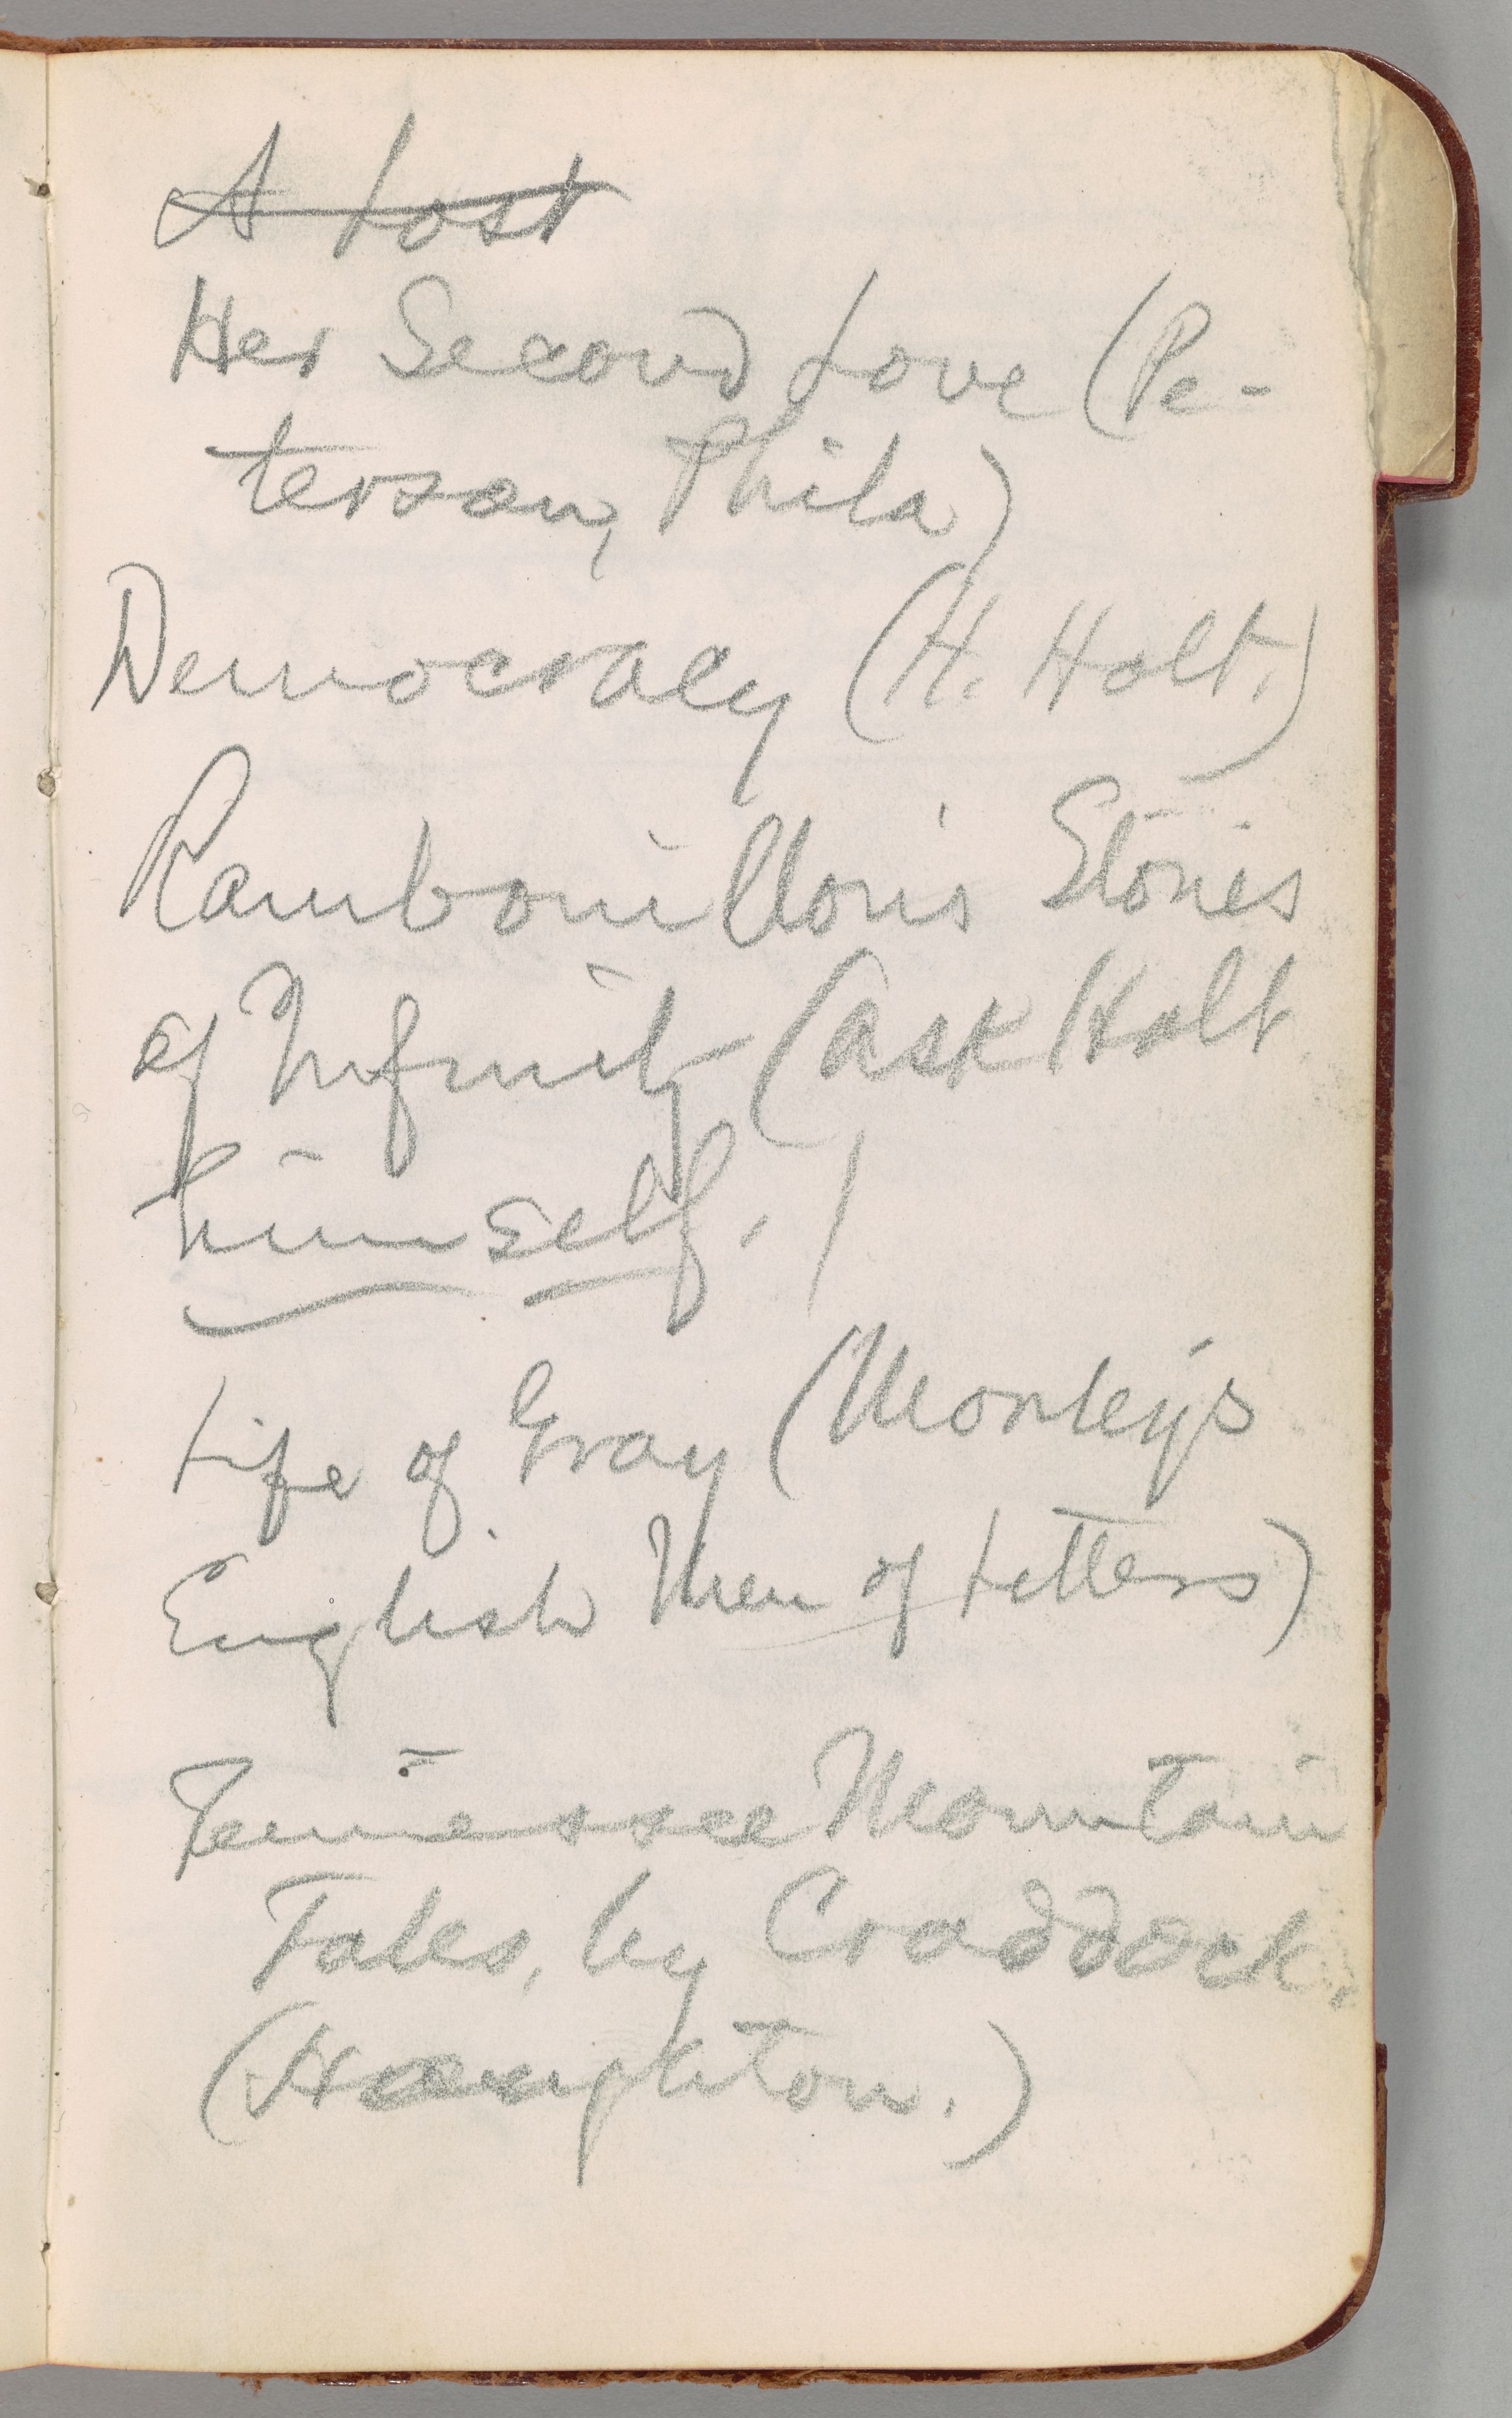 ~~A Lost~~
Her Second Love (Pe-
terson, Phila)
Democracy (H. Holt.)
Rambouillon's Stories
of Infinity (ask Holt
himself.)
Life of Gray (Morley's
English Men of Letters)
Tennessee Mountain
Tales, by Craddock.
(Houghton.)